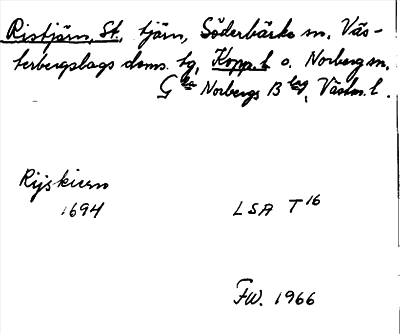 Ristjärn, St. tjärn, Söderbärke sn, Väs-
terbergslags doms. tg, Kopp. l o. Norberg sn,
G:la Norbergs Blag, Västm. l.
Rijskiern
1694
LSA T 16
FW. 1966